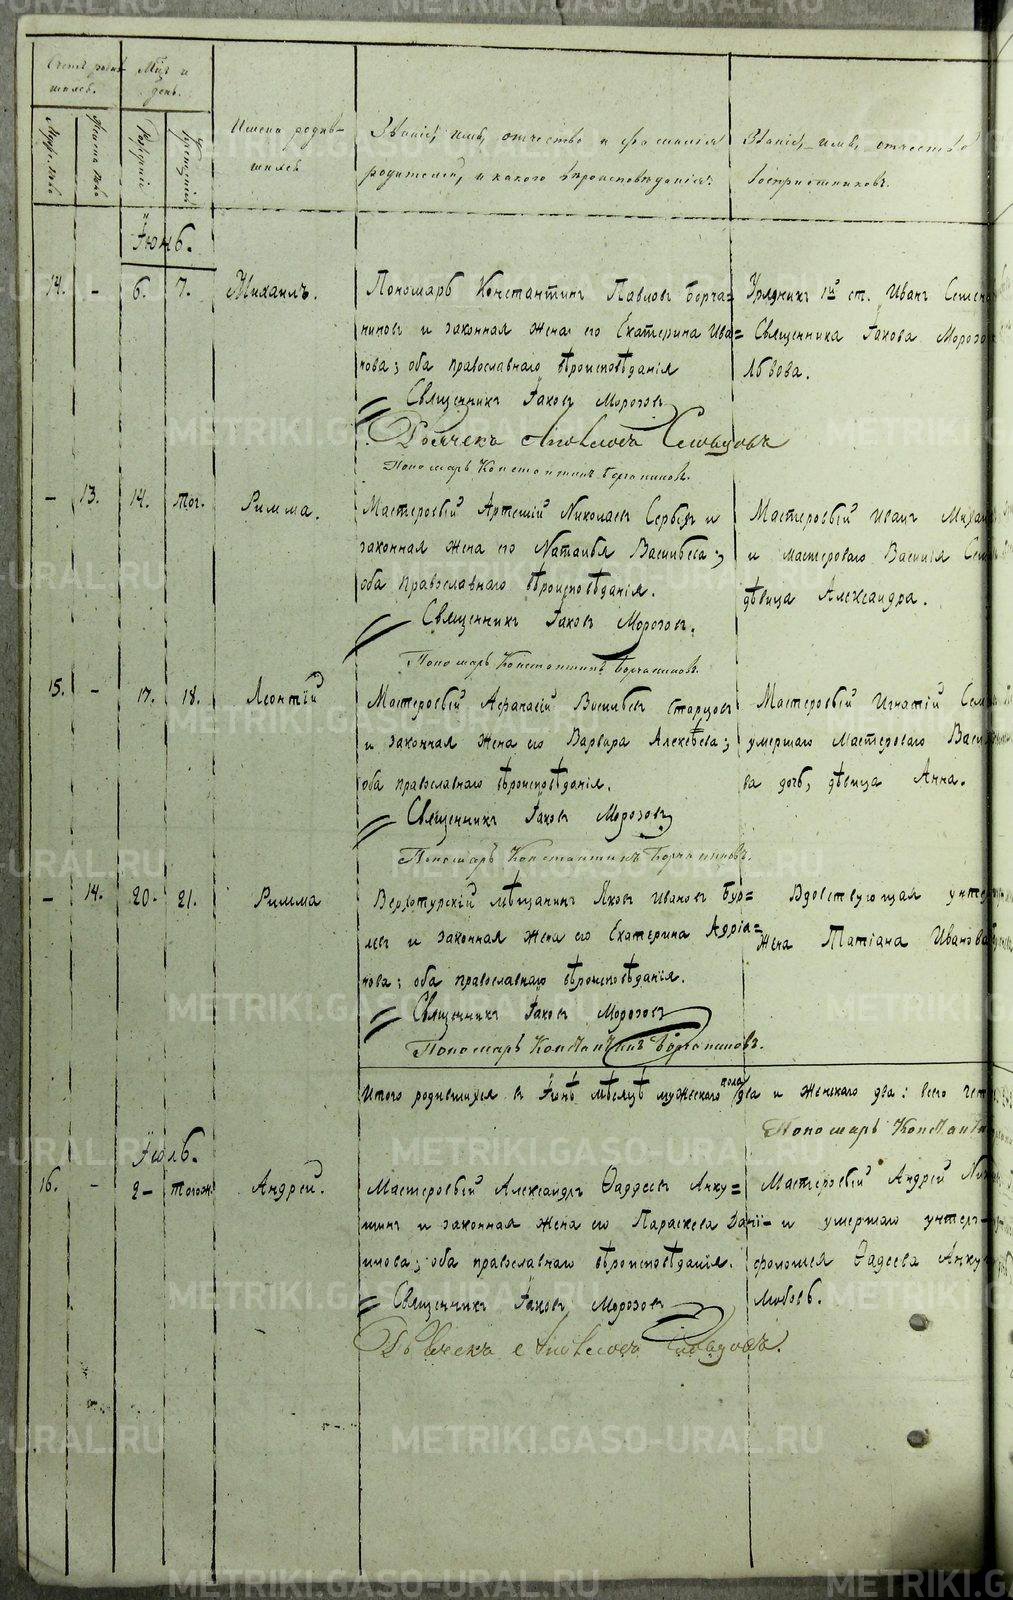 Счетъ родив-
шихся.
Мѣс. и
день.
Муж. пола
Женска пола
Рожденія
Крещенія
Имена родив-
шихся
Званіе, имя, отчество и фамилія
родителей, и какого вѣроисповѣданія.
Званіе, имя, отчество
воспріемниковъ.
Іюнь.
14. - 6. 7. Михаилъ.
Пономарь Константинъ Павловъ Борча=
ниновъ и законная жена его Екатерина Ива=
нова; оба православнаго вѣроисповѣданія
Священникъ Іаковъ Морозовъ
Пономарь Константинъ Борчаниновъ.
Урядникъ 1й ст. Иванъ Семен
Священника Іакова Морозо
Львова.
- 13. 14. тог. Римма.
Мастеровый Артемій Николаевъ и
законная жена его Наталья Васильева;
оба православнаго вѣроисповѣданія.
Священникъ Іаковъ Морозовъ.
Пономарь Константинъ Борчаниновъ.
Мастеровый Иванъ Михаи
и мастероваго Василія Сем
дѣвица Александра.
15. - 17. 18. Леонтій
Мастеровый Афанасій Васильевъ Старцовъ
и законная жена его Варвара Алексѣева;
оба православнаго вѣроисповѣданія.
Священникъ Іаковъ Морозовъ
Пономарь Константинъ Борчаниновъ.
Мастеровый Игнатій Сем
умершаго мастероваго Васи
ва дочь, дѣвица Анна.
- 14. 20. 21. Римма
Верхотурскій мѣщанинъ Яковъ Ивановъ Бур=
левъ и законная жена его Екатерина Адріа=
нова; оба православнаго вѣроисповѣданія.
Священникъ Іаковъ Морозовъ
Пономарь Константинъ Борчаниновъ.
Вдовствующая унтер
жена Татіана Иванова
Итого родившихся въ Іюнѣ мѣсяцѣ мужескаго пола два и женскаго два: всего чет
Пономарь Константи
Іюль.
16. - 2- тогож. Андрей.
Мастеровый Александръ Ѳаддеевъ Анку=
шинъ и законная жена его Параскева Дані=
илова; оба православнаго вѣроисповѣданія.
Священникъ Іаковъ Морозовъ
Мастеровый Андрей Ник
и умершаго унтеръ-
фоломея Ѳадеева Анку
любовь.
METRIKI.GASO-URAL.RU